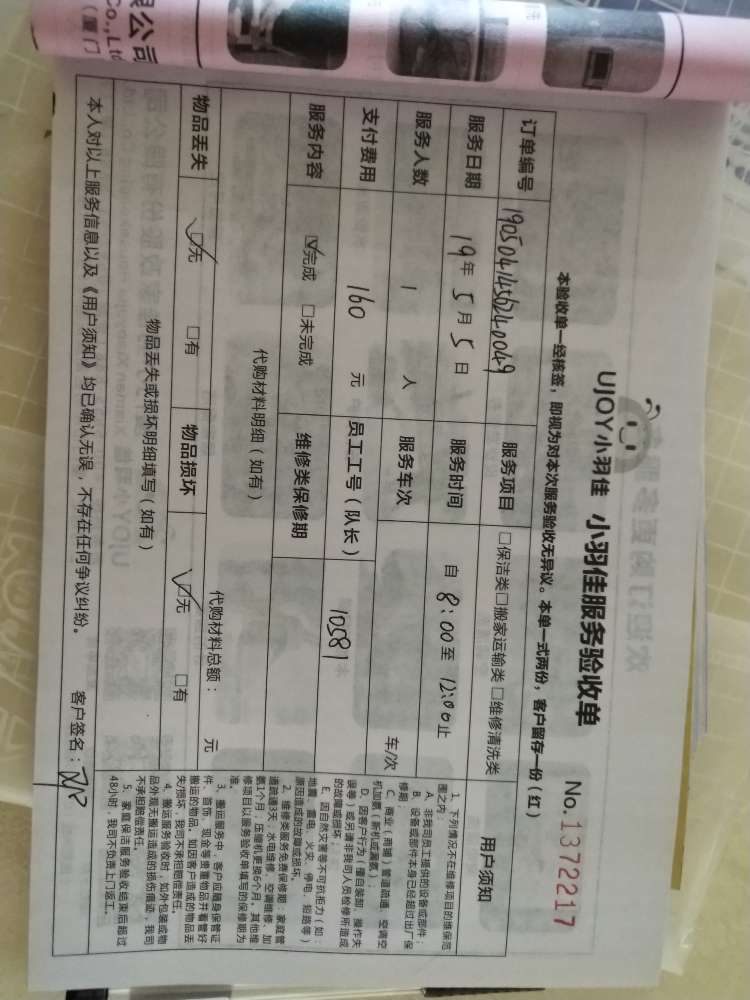 限公司
Co.,Ltd
(厦门
UJOY小羽佳 小羽佳服务验收单
No.1372217
本验收单一经核签，即视为对本次服务验收无异议。本单一式两份，客户留存一份(红)
订单编号 190504145624-0049 服务项目 □保洁类□搬家运输类□维修清洗类
服务日期 19年5月5日 服务时间 自8:00至12:00止
服务人数 1 人 服务车次 车/次
支付费用 160 元 员工工号(队长) 10581
服务内容 ☑完成 □未完成 维修类保修期
代购材料明细(如有) 代购材料总额： 元
物品丢失 ☑无 □有 物品损坏 ☑无 □有
物品丢失或损坏明细填写(如有)
本人对以上服务信息以及《用户须知》均已确认无误，不存在任何争议纠纷。 客户签名：
用户须知
1、下列情况不在维修项目的维保范
围之内：
A、非我司员工提供的设备或部件；
B、设备或部件本身已经超过出厂保
修期；
C、商用(商铺)管道疏通、空调空
机加氨(新机或漏氨)；
D、因客户行为(擅自装卸、操作失
误等)或另请非我司人员检修所造成
的故障或损坏；
E、因自然灾害等不可抗拒力(如：
地震、雷电、火灾、停电、短路等)
原因造成的故障或损坏。
2、维修类服务免费保修期：家庭管
道疏通3天，水电维修、空调维修、加
氨1个月；压缩机更换6个月。其他维
修项目以服务验收单填写的保修期为
准。
3、搬运服务中，客户应随身保管证
件、首饰、现金等贵重物品并看管好
搬运的物品，如因客户造成的物品丢
失/损坏，我司不承担赔偿责任。
4、搬运服务验收时，如外包装或物
品外观无搬运造成的损伤痕迹，我司
不承担赔偿责任。
5、家庭保洁服务验收结束后超过
48小时，我司不负责上门返工。